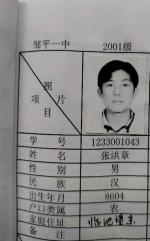 邹平一中 2001级
照片
项目
学号 1233001043
姓名 张洪章
性别 男
民族 汉
出生年月 8604
户口类属 农
家庭住址 临池望京
备注